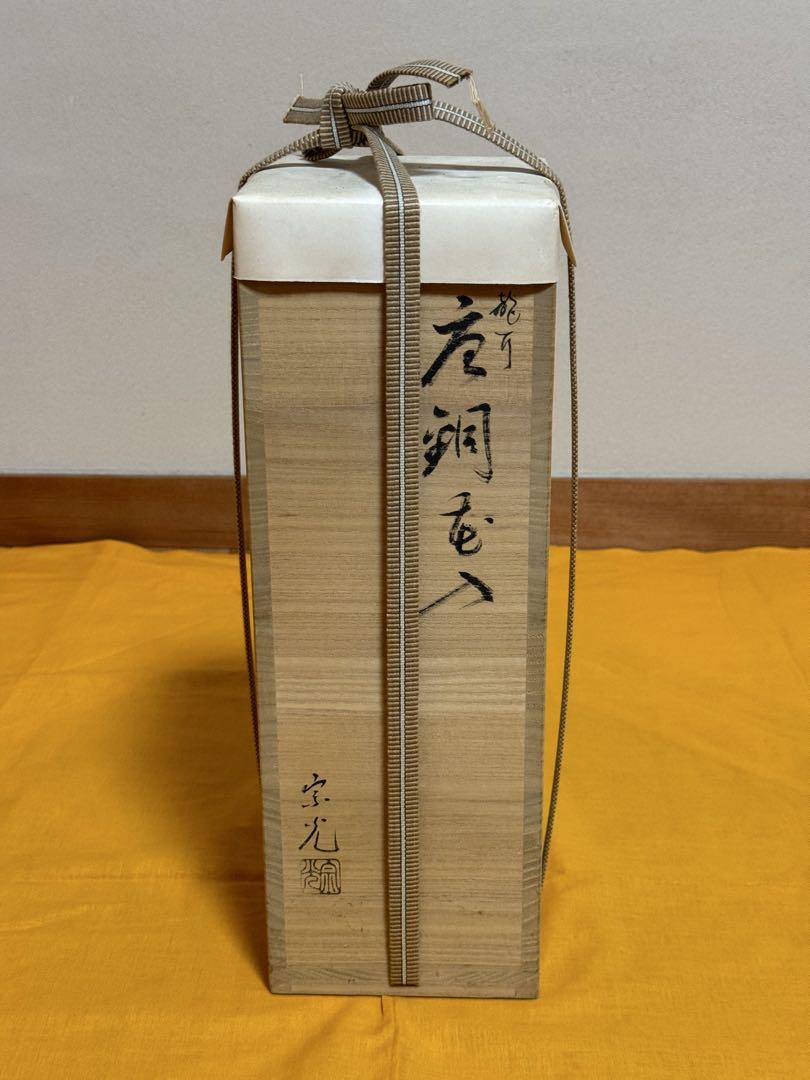 龍耳
唐銅花入
宗光
宗光